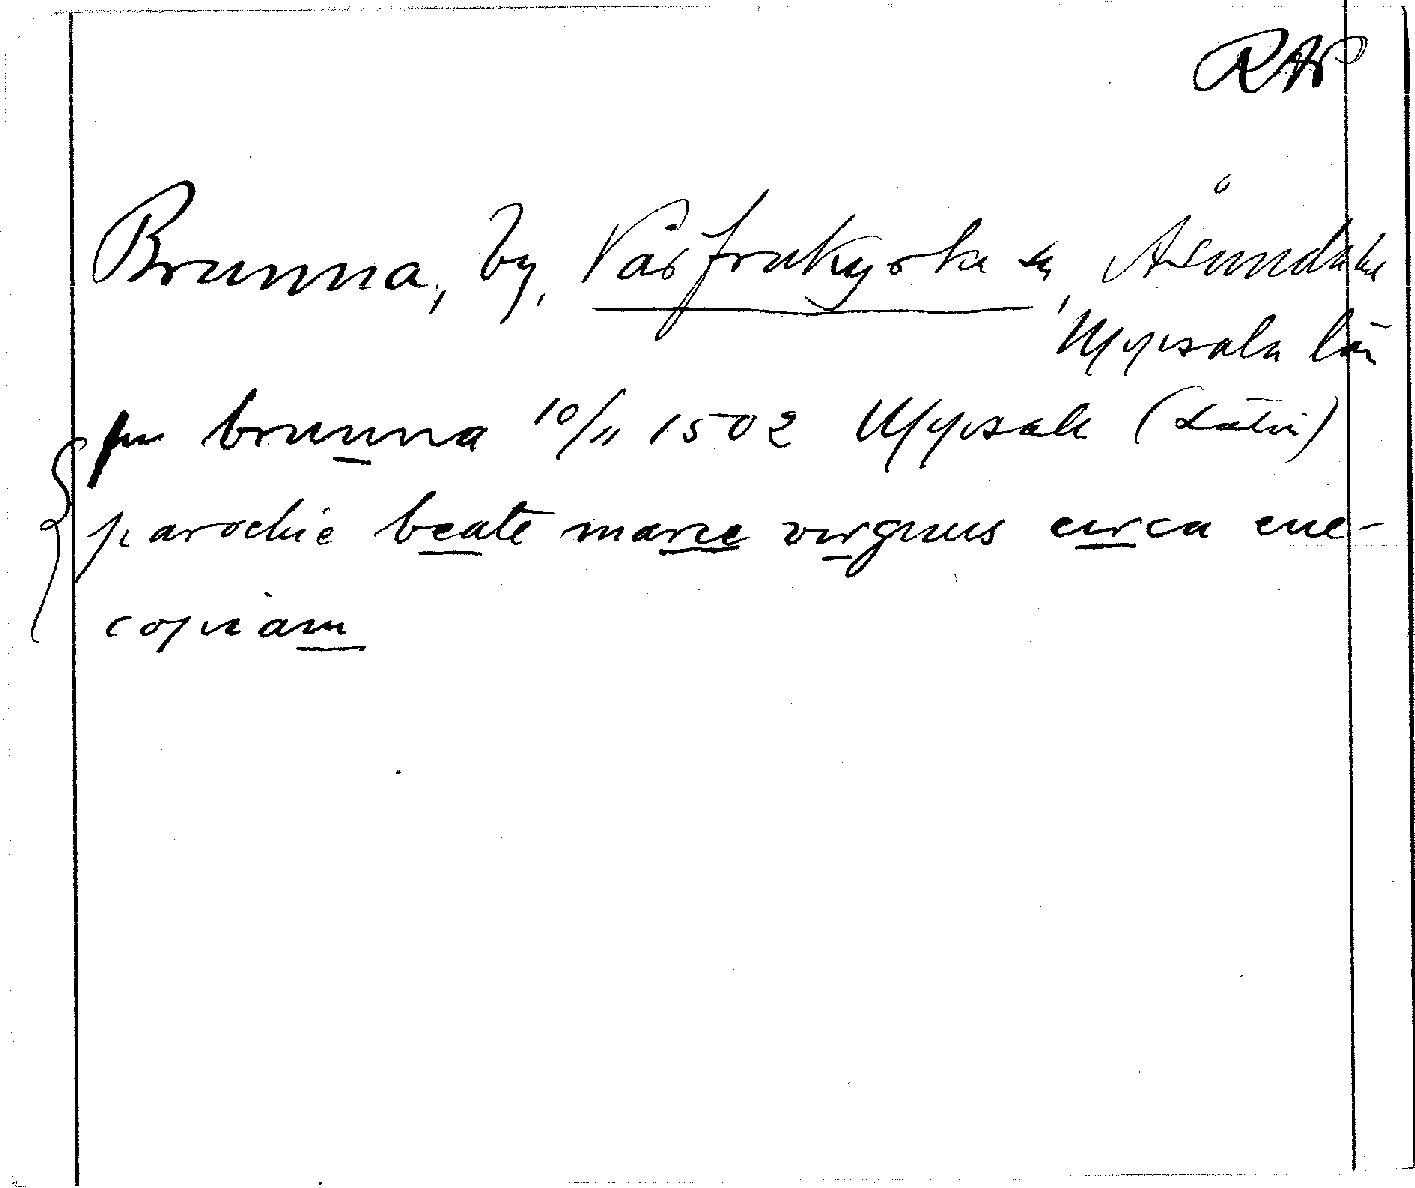 RAP
Brunna, by, Vårfrukyrka sn, Åsunda hd
Uppsala län
brunna 10/11 1502 Uppsala (Latin)
parochie beate marie virginis circa ene-
copiam